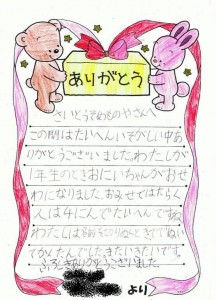 ありがとう
さいとうそめものやさんへ
この間はたいへんいそがしい中あ
りがとうございました。わたしが
1年生のときおにいちゃんがおせ
わになりました。おみせではたらく
人は4にんでたいへんですね
わたしは
てかんたんでしたまたいきたいです。
ありがとうございました。
より